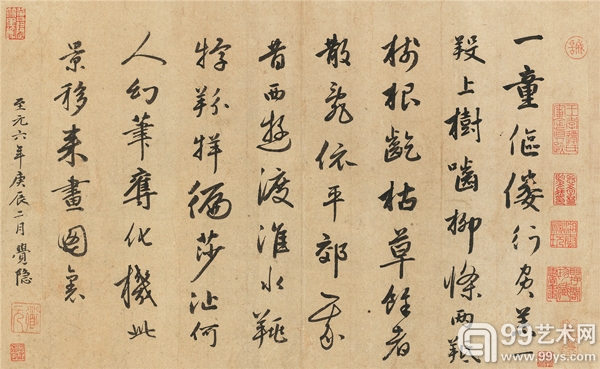 一童傴僂行負蕘一
羖上樹嚙柳條兩羝
樹根齕枯草餘者
散亂依平郊我
昔西遊渡淮水
牸羒牂徧莎沚何
人幻筆奪化機此
景移來畫圖裏
至元六年庚辰二月覺隱
99艺术网
www.99ys.com